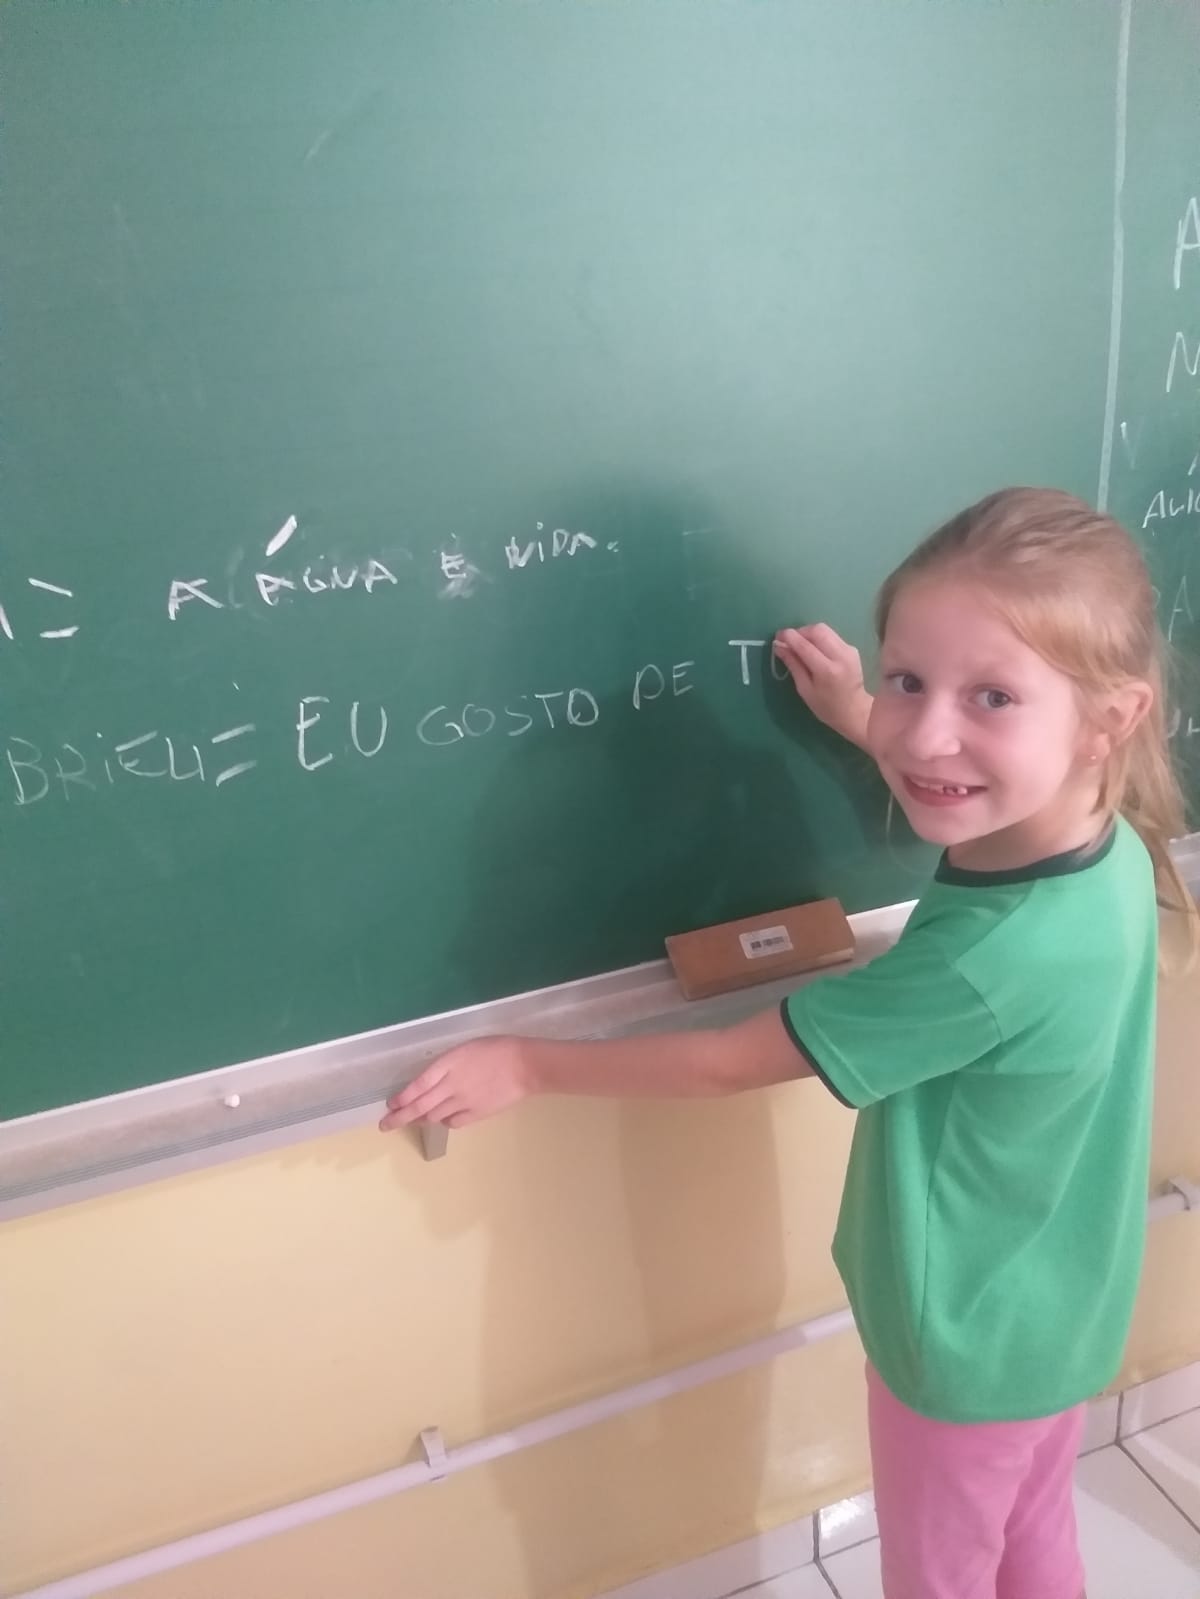 A ÁGUA É VIDA.
BRIELI= EU GOSTO DE TO
A
N
V
ALIC